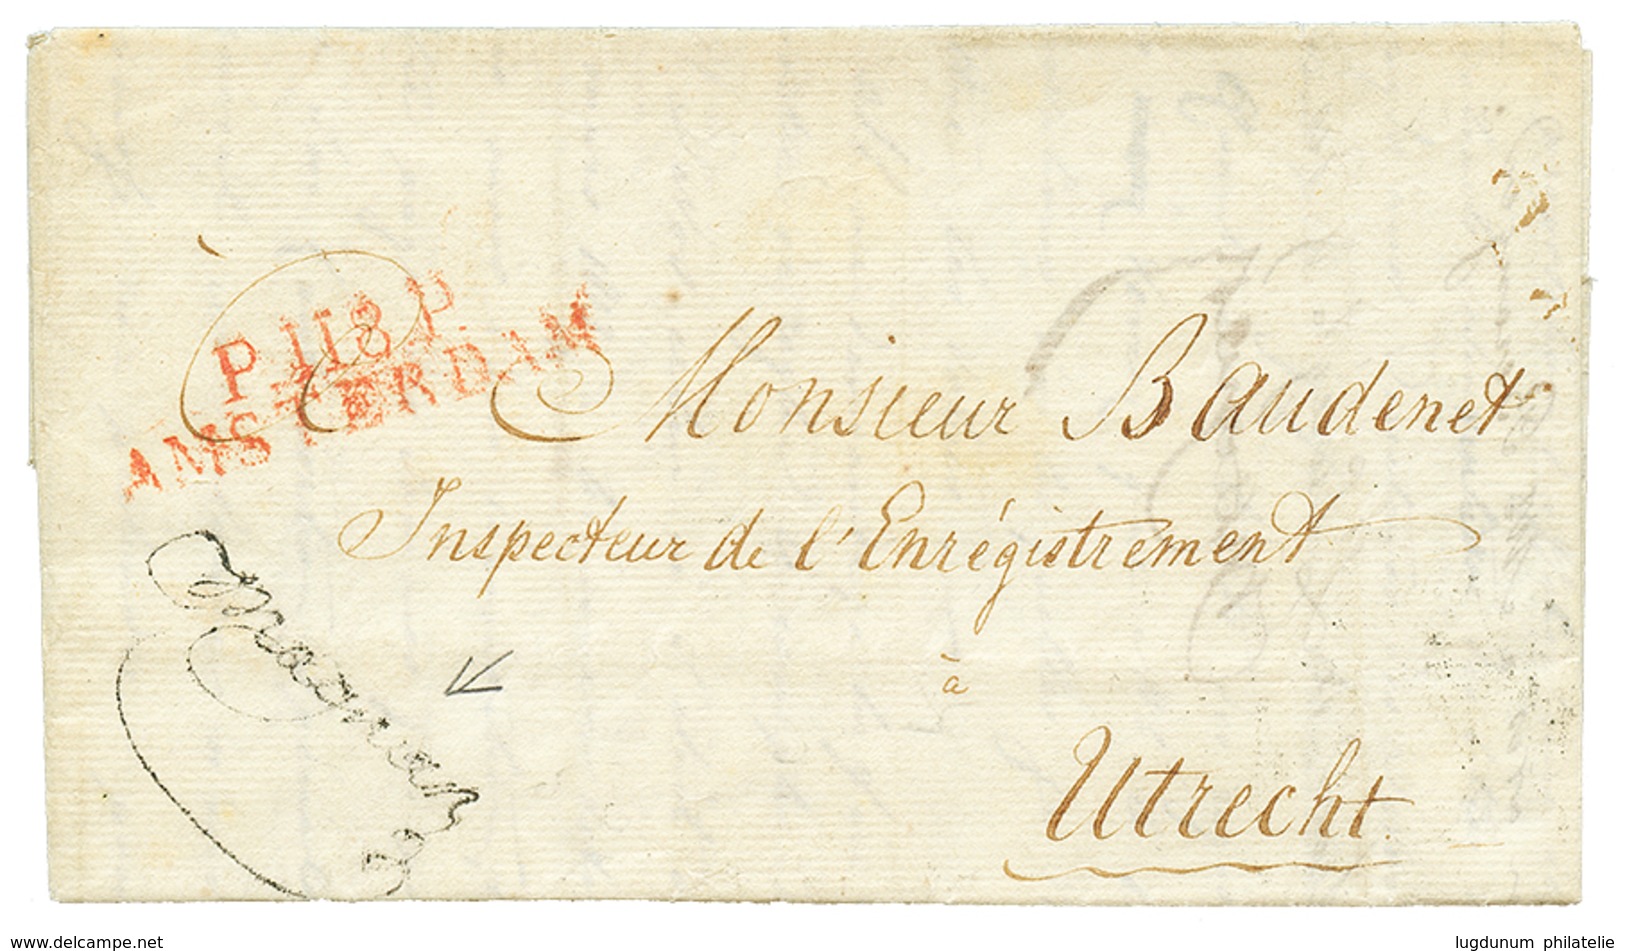 P. 118 P.
AMSTERDAM
Monsieur Baudenet
Inspecteur de l'Enrégistrement
à
Utrecht
www.delcampe.net
lugdunum philatelie